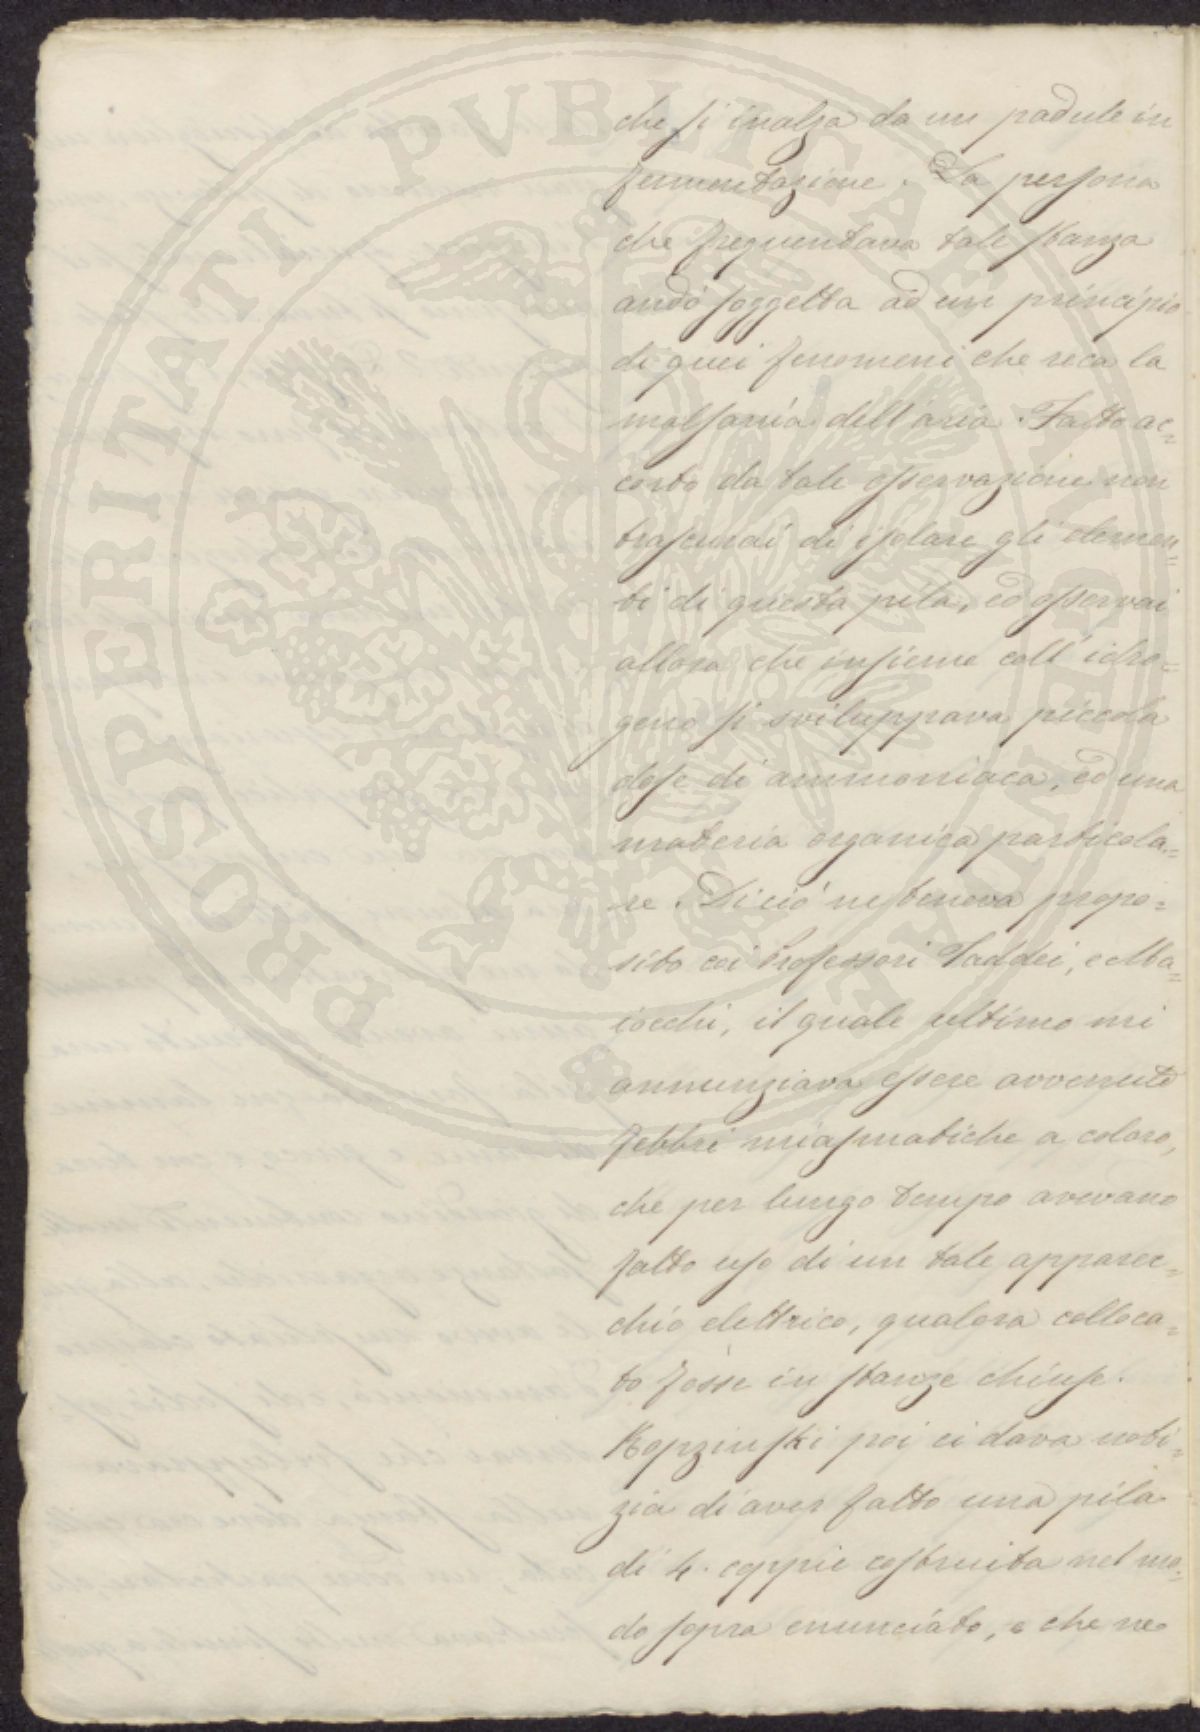 che si inalza da un padule in
fermentazione. La persona
che frequentava tale stanza
andò soggetta ad un principio
di quei fenomeni che reca la
malsanía dell'aria. Fatto ac=
corto da tale osservazione non
trascurai di isolare gli elemen=
ti di questa pila, ed osservai
allora che insieme coll'idro=
geno si sviluppava piccola
dose di ammoniaca, ed una
materia organica particola=
re. Di ciò ne teneva propo=
sito coi Professori Taddei, e Ma=
iocchi, il quale ultimo mi
annunziava essere avvenute
febbri miasmatiche a coloro,
che per lungo tempo avevano
fatto uso di un tale apparec=
chio elettrico, qualora colloca=
to fosse in stanze chiuse.
poi ci dava noti=
zia di aver fatto una pila
di 4. coppie costruita nel mo=
do sopra enunciato, e che ne
PROSPERITATI PVBLICAE AVGENDAE